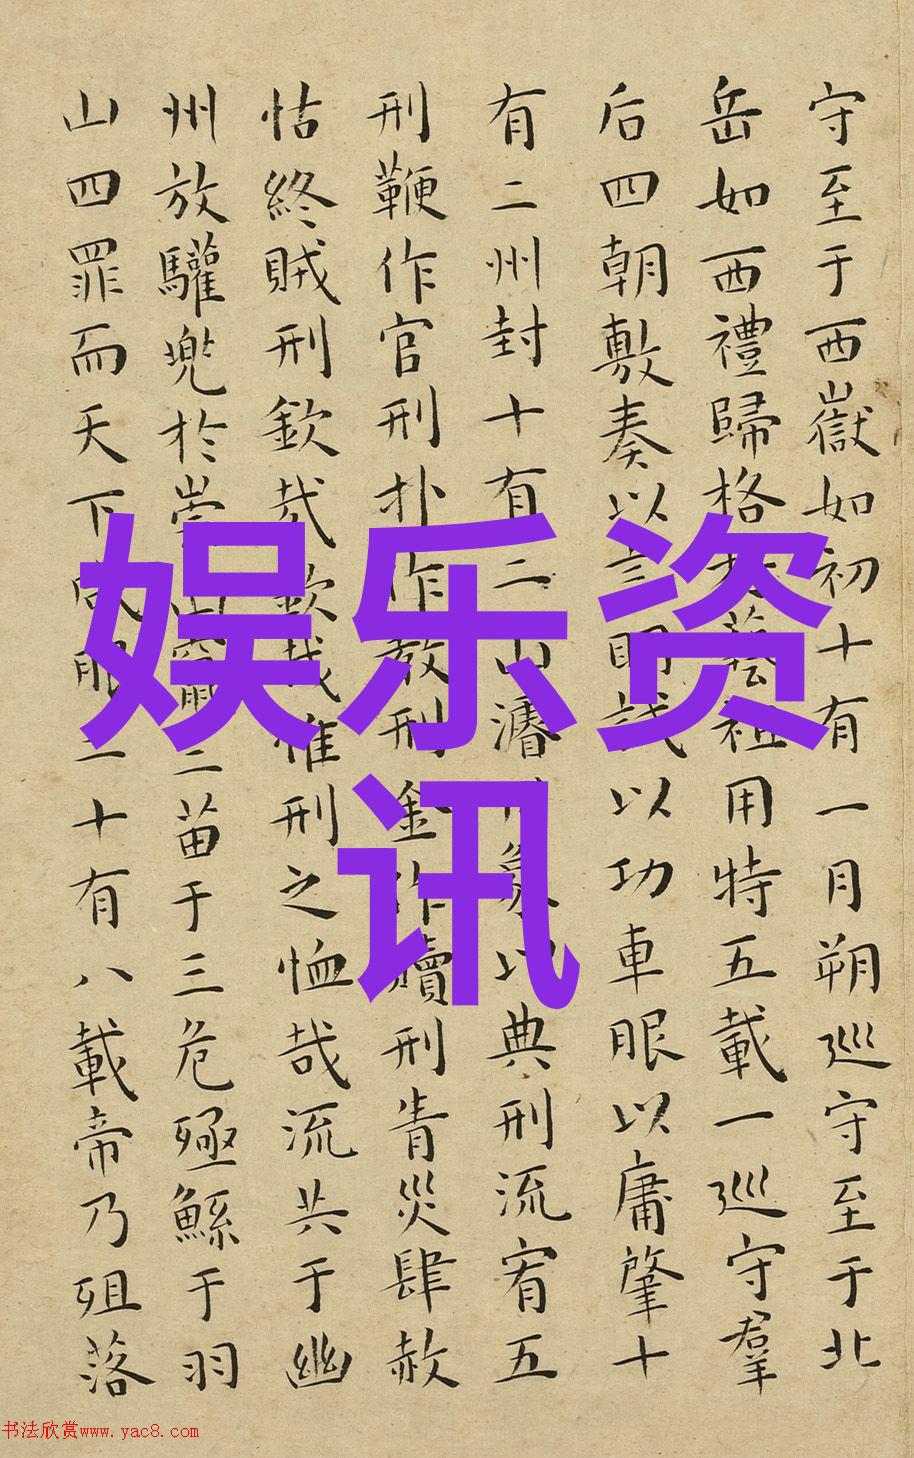 守至于西嶽如初十有一月朔巡守至于北
岳如西禮歸格藝祖用特五載一巡守羣
后四朝敷奏以言明試以功車服以庸肇十
有二州封十有二山濬川象以典刑流宥五
刑鞭作官刑扑作教刑金作贖刑眚災肆赦
怙終賊刑欽哉欽哉惟刑之恤哉流共于幽
州放驩兜於崇山竄三苗于三危殛鯀于羽
山四罪而天下咸服二十有八載帝乃殂落
娱乐资
讯
书法欣赏www.yac8.com